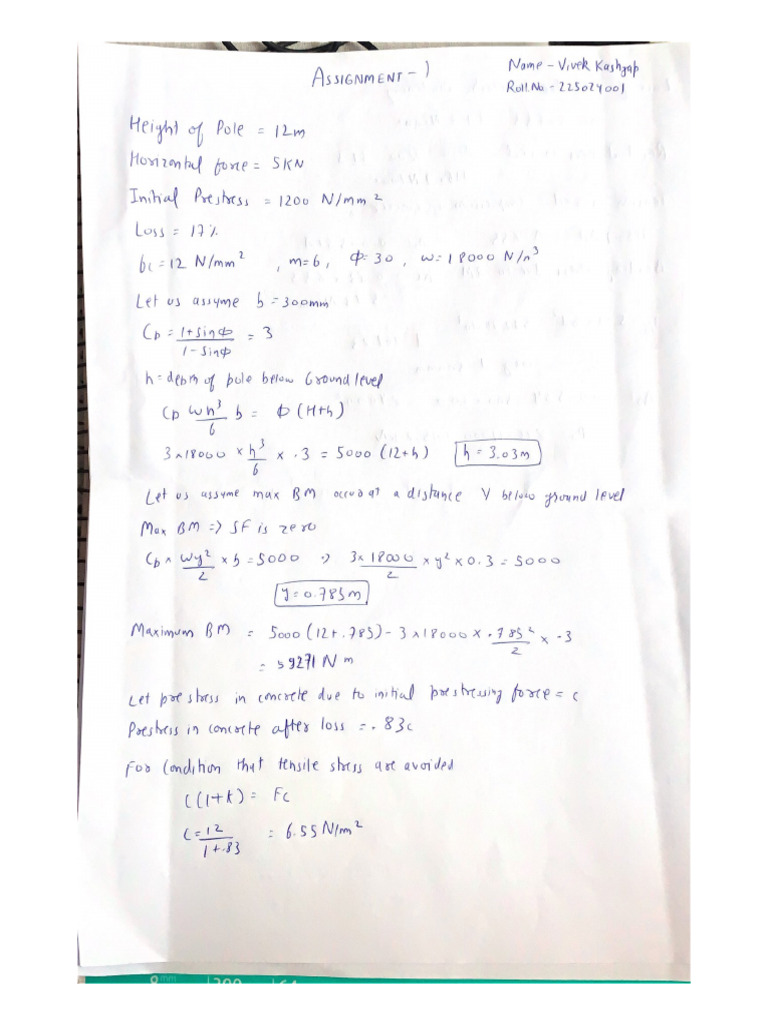 ASSIGNMENT - 1
Name - Vivek Kashyap
Roll.No - 225024001
Height of Pole = 12m
Horizontal force = 5KN
Initial Prestress = 1200 N/mm2
Loss = 17%
bc = 12 N/mm2 , m=6, Φ=30, w=18000 N/m3
Let us assume b = 300mm
Cp = 1+sinΦ / 1-sinΦ = 3
h = depth of pole below Ground level
Cp wh3/6 b = P (H+h)
3×18000 × h3/6 × .3 = 5000 (12+h) h = 3.03m
Let us assume max BM occur at a distance Y below ground level
Max BM => SF is zero
Cp × wy2/2 × b = 5000 => 3×18000/2 × y2 × 0.3 = 5000
y = 0.785m
Maximum BM = 5000 (12+.785) - 3×18000 × .7852/2 × .3
= 59271 N m
Let prestress in concrete due to initial prestressing force = c
Prestress in concrete after loss = .83c
For Condition that tensile stress are avoided
C(1+k) = Fc
C = 12 / 1+.83 = 6.55 N/mm2
8mm